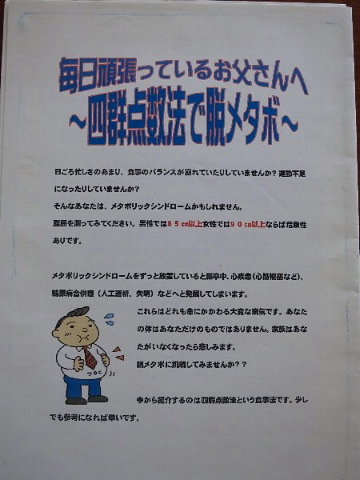 毎日頑張っているお父さんへ
～四群点数法で脱メタボ～
日ごろ忙しさのあまり、食事のバランスが崩れていたりしていませんか？運動不足
になったりしていませんか？
そんなあなたは、メタボリックシンドロームかもしれません。
腹囲を測ってみてください。男性では８５㎝以上女性では９０㎝以上ならば危険性
ありです。
メタボリックシンドロームをずっと放置していると脳卒中、心疾患（心筋梗塞など）、
糖尿病合併症（人工透析、失明）などへと発展してしまいます。
これらはどれも命にかかわる大変な病気です。あなた
の体はあなただけのものではありません。家族はあな
たがいなくなったら悲しみます。
脱メタボに挑戦してみませんか？？
今から紹介するのは四群点数法という食事法です。少し
でも参考になれば幸いです。